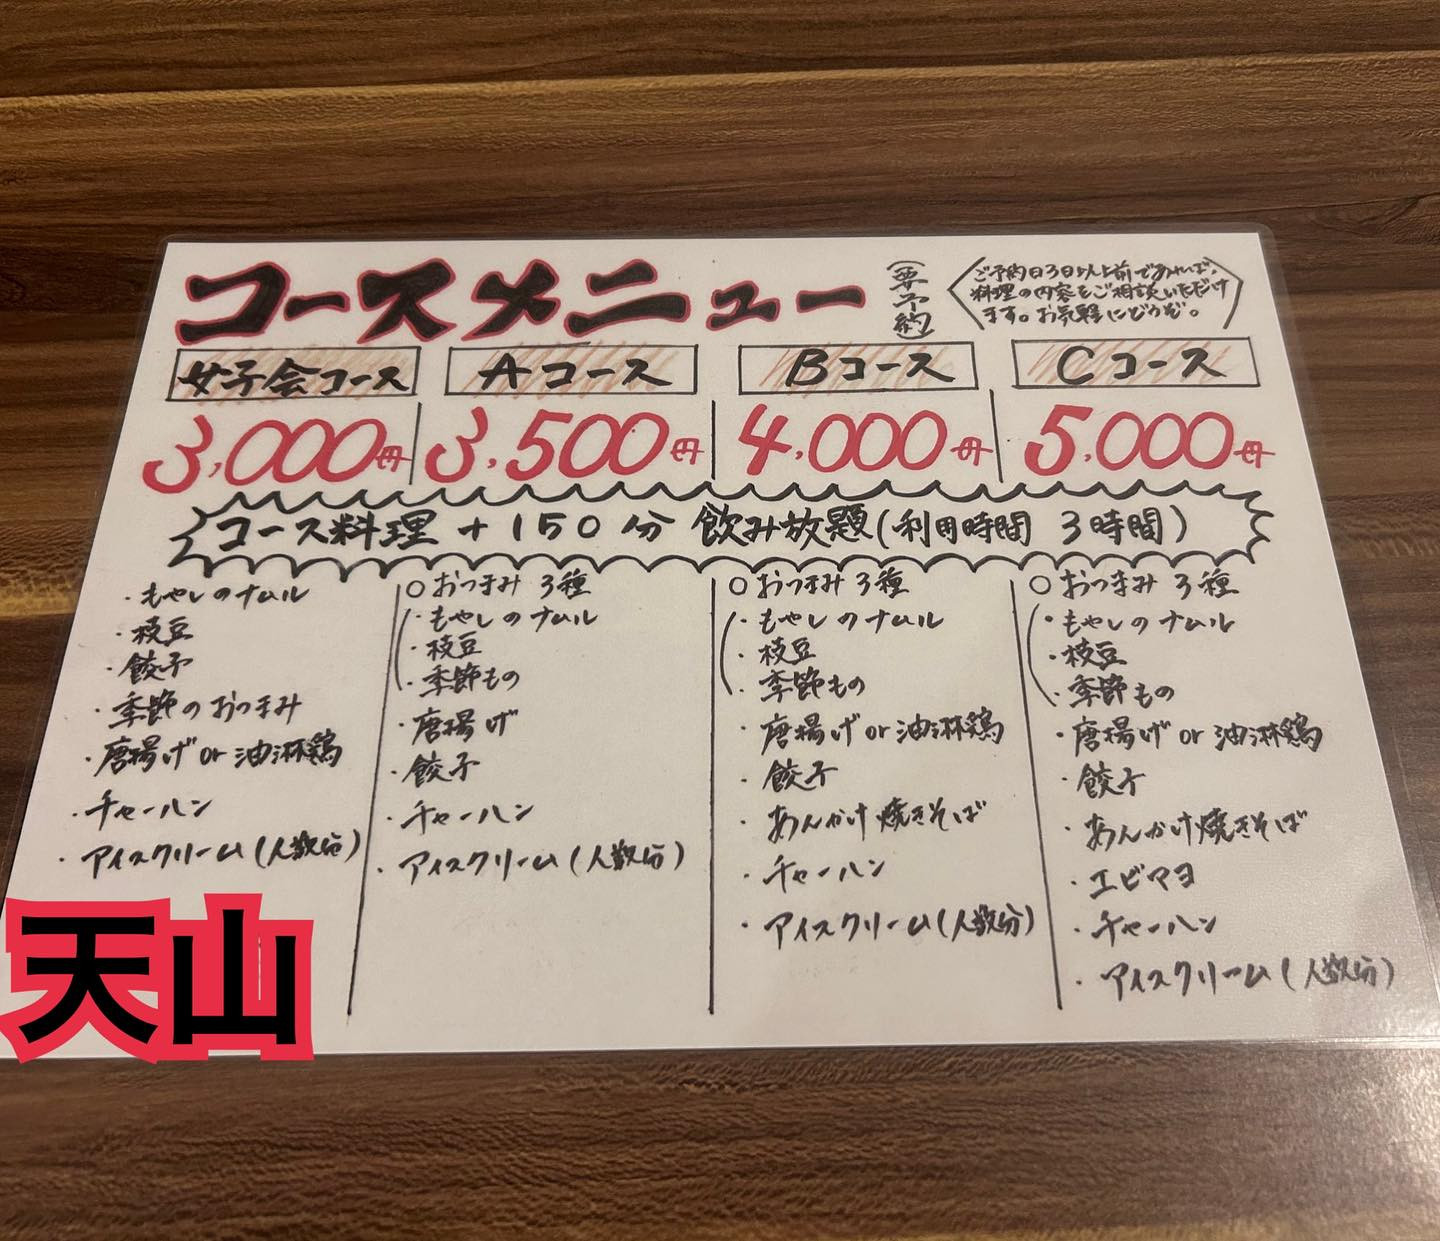 コースメニュー
(要予約)
ご予約日3日以上前であれば、
料理の内容をご相談いただけ
ます。お気軽にどうぞ。
女子会コース
3,000円
Aコース
3,500円
Bコース
4,000円
Cコース
5,000円
コース料理+150分 飲み放題(利用時間 3時間)
・もやしのナムル
・枝豆
・餃子
・季節のおつまみ
・唐揚げor油淋鶏
・チャーハン
・アイスクリーム(人数分)
○おつまみ 3種
・もやしのナムル
・枝豆
・季節もの
・唐揚げ
・餃子
・チャーハン
・アイスクリーム(人数分)
○おつまみ 3種
・もやしのナムル
・枝豆
・季節もの
・唐揚げor油淋鶏
・餃子
・あんかけ焼きそば
・チャーハン
・アイスクリーム(人数分)
○おつまみ 3種
・もやしのナムル
・枝豆
・季節もの
・唐揚げor油淋鶏
・餃子
・あんかけ焼きそば
・エビマヨ
・チャーハン
・アイスクリーム(人数分)
天山